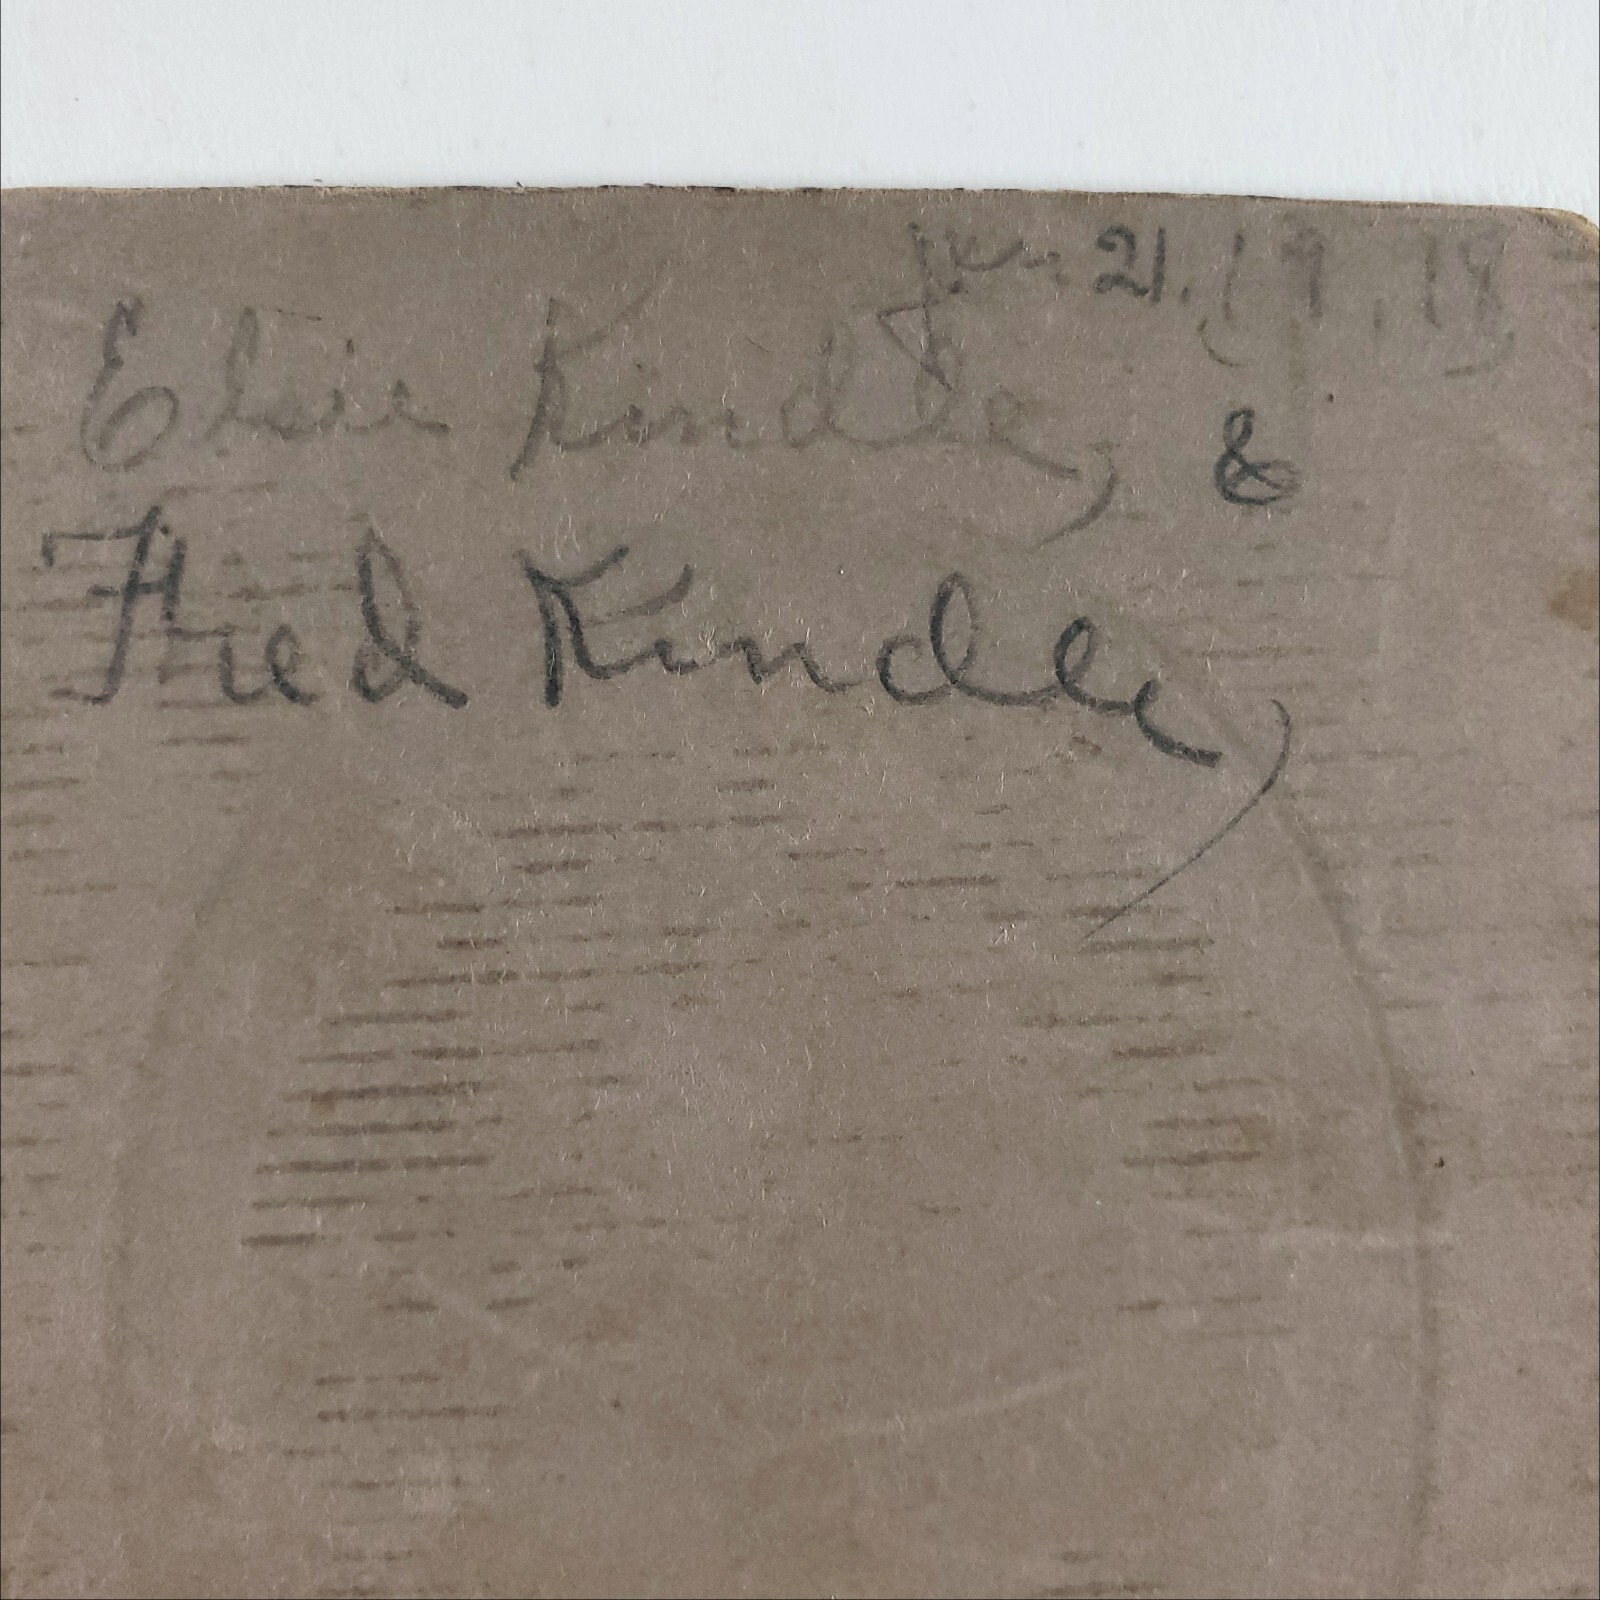 Jan. 21. 19, 18
Elsie Kindle, &
Fred Kindle,